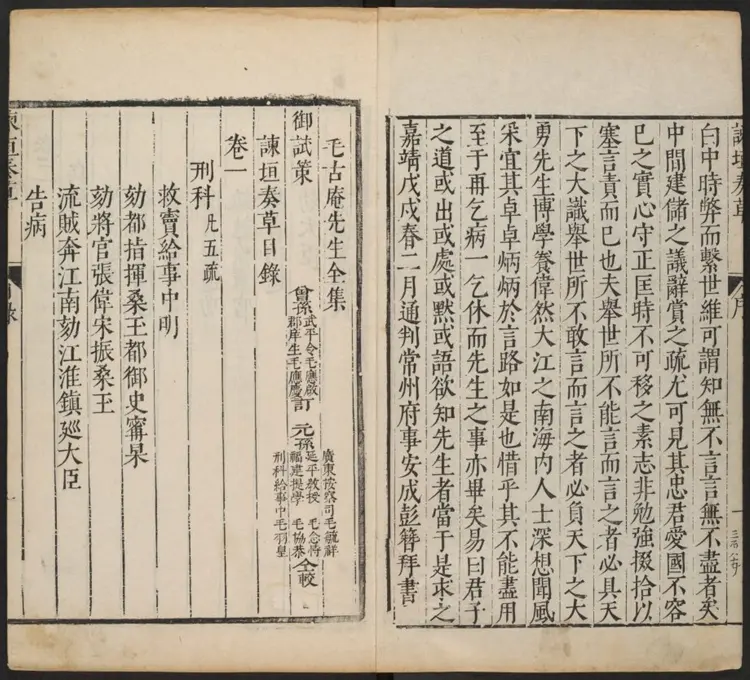 諫垣奏草
序
一
白中時弊而繫世維可謂知無不言言無不盡者矣
中間建儲之議辭賞之疏尤可見其忠君愛國不容
已之實心守正匡時不可移之素志非勉強掇拾以
塞言責而已也夫舉世所不能言而言之者必具天
下之大識舉世所不敢言而言之者必負天下之大
勇先生博學養偉然大江之南海內人士深想聞風
采宜其卓卓炳炳於言路如是也惜乎其不能盡用
至于再乞病一乞休而先生之事亦畢矣易曰君子
之道或出或處或默或語欲知先生者當于是求之
嘉靖戊戌春二月通判常州府事安成彭簪拜書
毛古庵先生全集
御試策
曾孫武平令毛應
郡庠生毛應
訂
元孫
廣東按察司毛
延平教授毛念恃
福建提學毛協恭
刑科給事中毛羽皇
仝較
諫垣奏草目錄
卷一
刑科凡五疏
救竇給事中明
劾都指揮桑王都御史甯杲
劾將官張偉宋振桑王
流賊奔江南劾江淮鎮廵大臣
告病
諫垣奏草
目錄
一